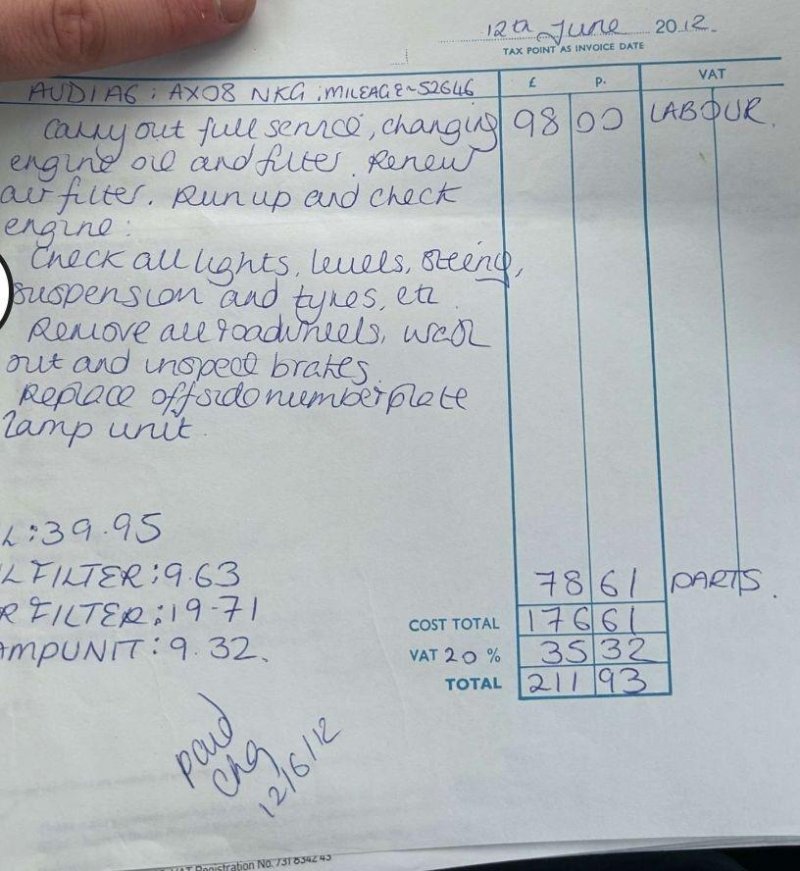 12th June 2012.
TAX POINT AS INVOICE DATE
AUDI A6 : AX08 NKG : MILEAGE ~ 52646 £ P. VAT
Carry out full service, changing 98 00 LABOUR.
engine oil and filter. Renew
air filter. Run up and check
engine:
Check all lights, levels, steering,
suspension and tyres, etc.
Remove all roadwheels, wash
out and inspect brakes.
Replace offside numberplate
lamp unit
L : 39.95
L FILTER : 9.63 78 61 PARTS.
R FILTER : 19-71 COST TOTAL 176 61
AMPUNIT : 9.32. VAT 20 % 35 32
TOTAL 211 93
Paid
chq
12/6/12
VAT Registration No. 731 8342 43